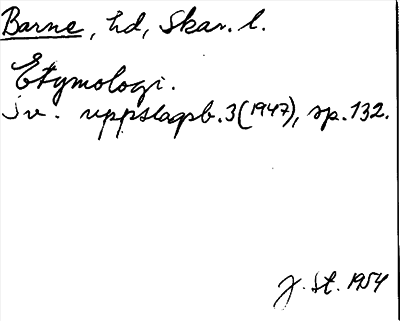 Barne, hd, Skar. l.
Etymologi.
jv. uppslagsb. 3 (1947), sp. 132.
J. St. 1954